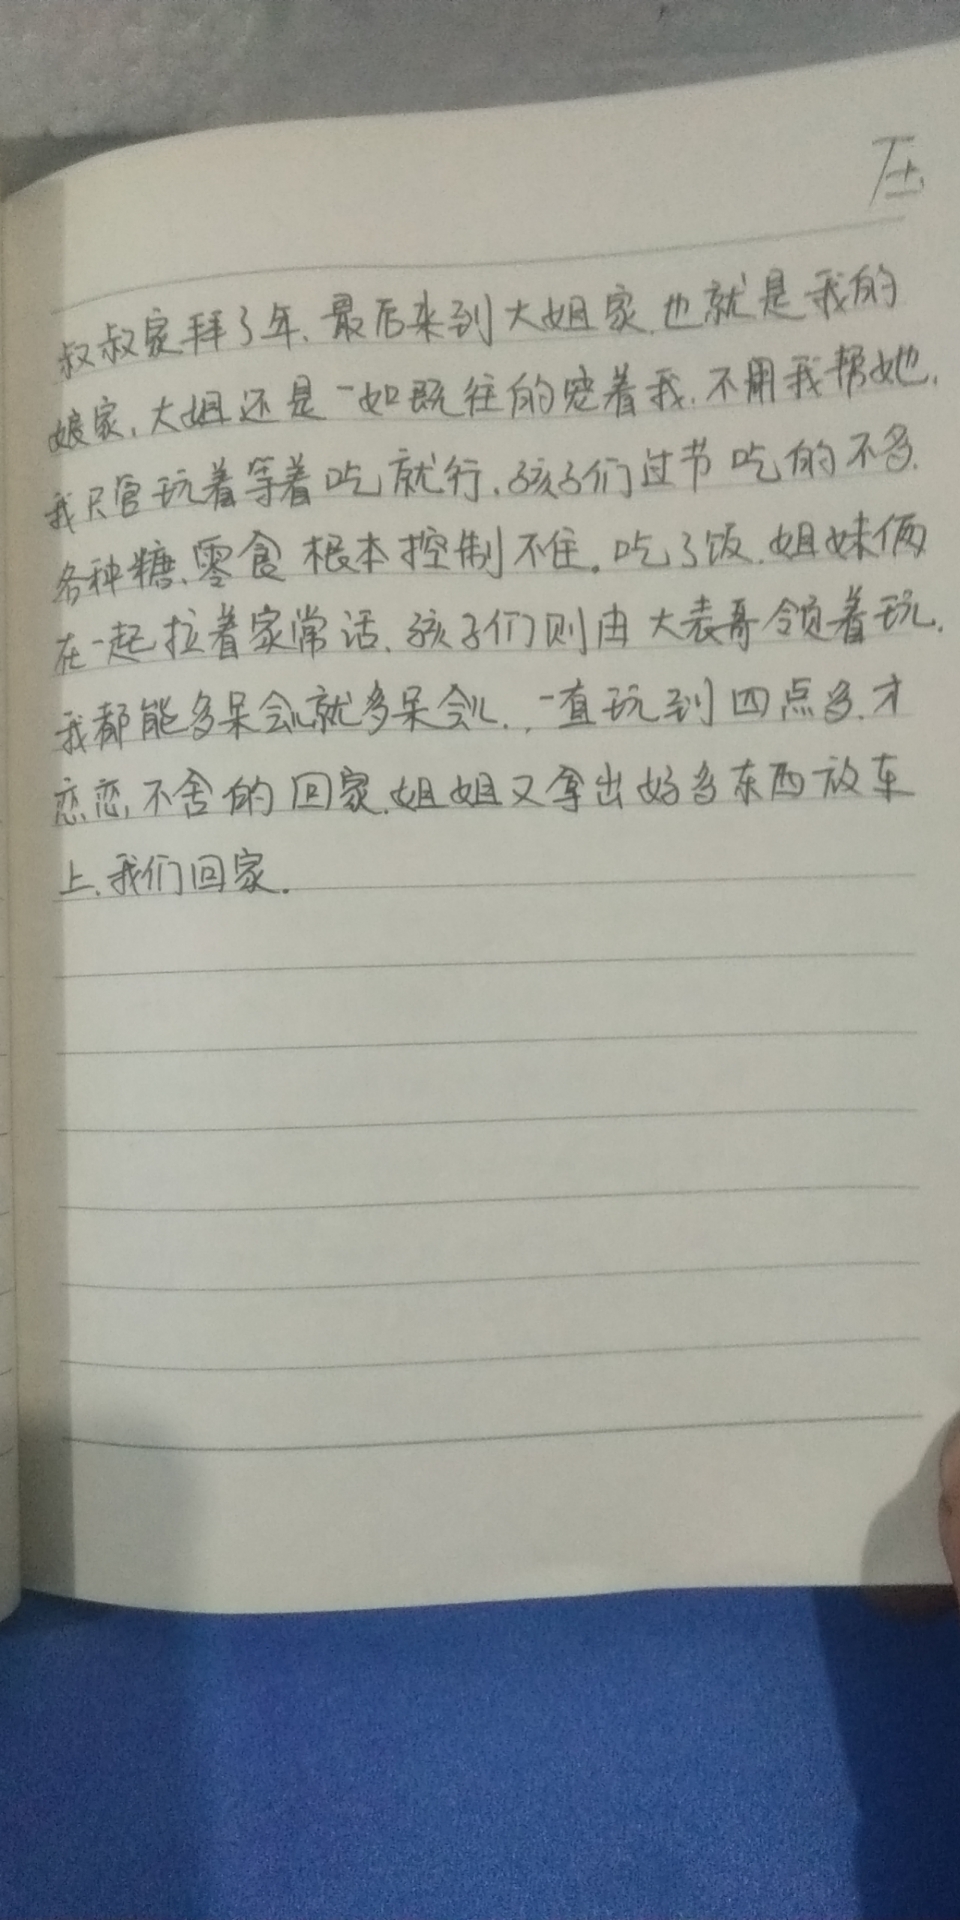 压
叔叔家拜了年、最后来到大姐家.也就是我的
娘家、大姐还是一如既往的宠着我.不用我帮她.
我只管玩着等着吃就行.孩子们过节吃的不多.
各种糖、零食根本控制不住。吃了饭.姐妹俩
在一起拉着家常话.孩子们则由大表哥领着玩.
我都能多呆会儿就多呆会儿.,一直玩到四点多.才
恋恋不舍的回家.姐姐又拿出好多东西放车
上.我们回家.